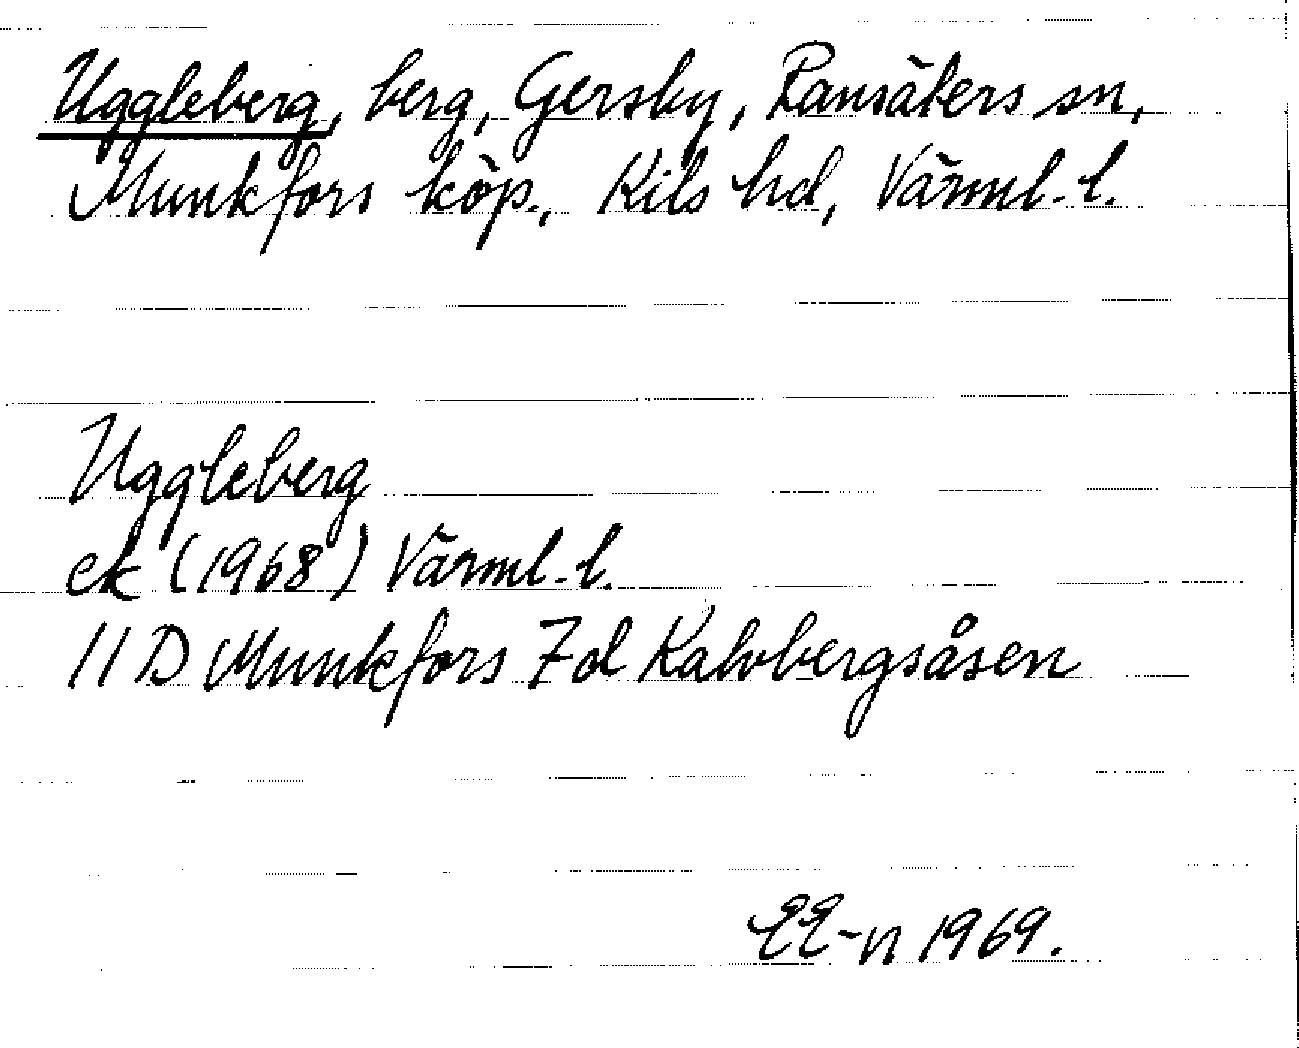 Uggleberg, berg, Gersby, Ransäters sn,
Munkfors köp., Kils hd, Värml. l.
Uggleberg
ek (1968) Värml. l.
11 D Munkfors 7 d Kalvbergsåsen
EE-n 1969.